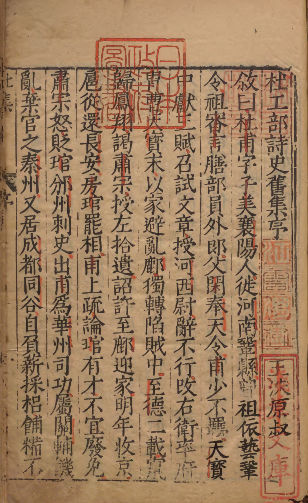 杜工部詩史舊集序 王洙原叔
敘曰杜甫字子美襄陽人徙河南鞏縣 祖依藝鞏
令祖審言膳部員外郎父閑奉天令甫少不羈天寶
中獻三賦召試文章授河西尉辭不行改右衛率府
曹天寶末以家避亂鄜獨轉陷賊中至德二載竄
歸鳳翔謁肅宗授左拾遺詔許至鄜迎家明年收京
扈從還長安房琯罷相甫上疏論琯有才不宜廢免
肅宗怒貶琯邠州刺史出甫為華州司功屬關輔饑
亂棄官之秦州又居成都同谷自負薪採梠餔糒不